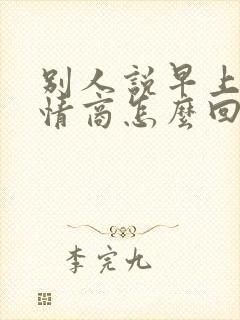 別人說早上
情商怎麼回
李完九